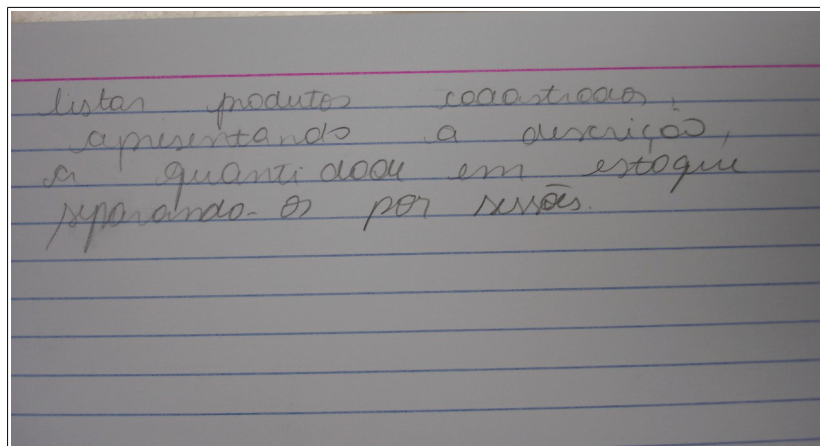 listar produtos cadastrados,
apresentando a descrição,
a quantidade em estoque
separando-os por sessões.